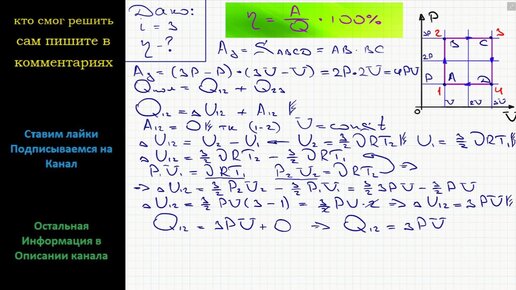 кто смог решить
сам пишите в
комментариях
Ставим лайки
Подписываемся на
Канал
Остальная
Информация в
Описании канала
Дано:
i = 3
η - ?
η = A/Q · 100%
A = S ABCD = AB · BC
A = (3P - P) · (3V - V) = 2P · 2V = 4PV
Q = Q12 + Q23
Q12 = ΔU12 + A12
A12 = 0 тк (1-2) V = const
ΔU12 = U2 - U1 U2 = 3/2 νRT2 U1 = 3/2 νRT1
ΔU12 = 3/2 νRT2 - 3/2 νRT1
P1V1 = νRT1 P2V2 = νRT2 ⇒
⇒ ΔU12 = 3/2 P2V2 - 3/2 P1V1 = 3/2 3PV - 3/2 PV
ΔU12 = 3/2 PV (3 - 1) = 3/2 PV · 2 ⇒ ΔU12 = 3PV
Q12 = 3PV + 0 ⇒ Q12 = 3PV
P
2 3
3P B C
P A D
1 4
V 2V 3V V